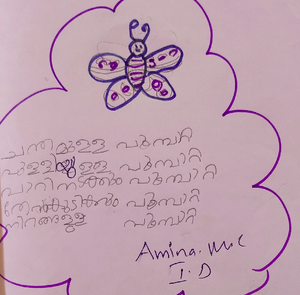 ചന്തമുള്ള പൂമ്പാറ്റ
പുള്ളിയുള്ള പൂമ്പാറ്റ
പാറിനടക്കും പൂമ്പാറ്റ
തേൻകുടിക്കും പൂമ്പാറ്റ
നിറങ്ങളുള്ള പൂമ്പാറ്റ
Amina. M.C
I.D